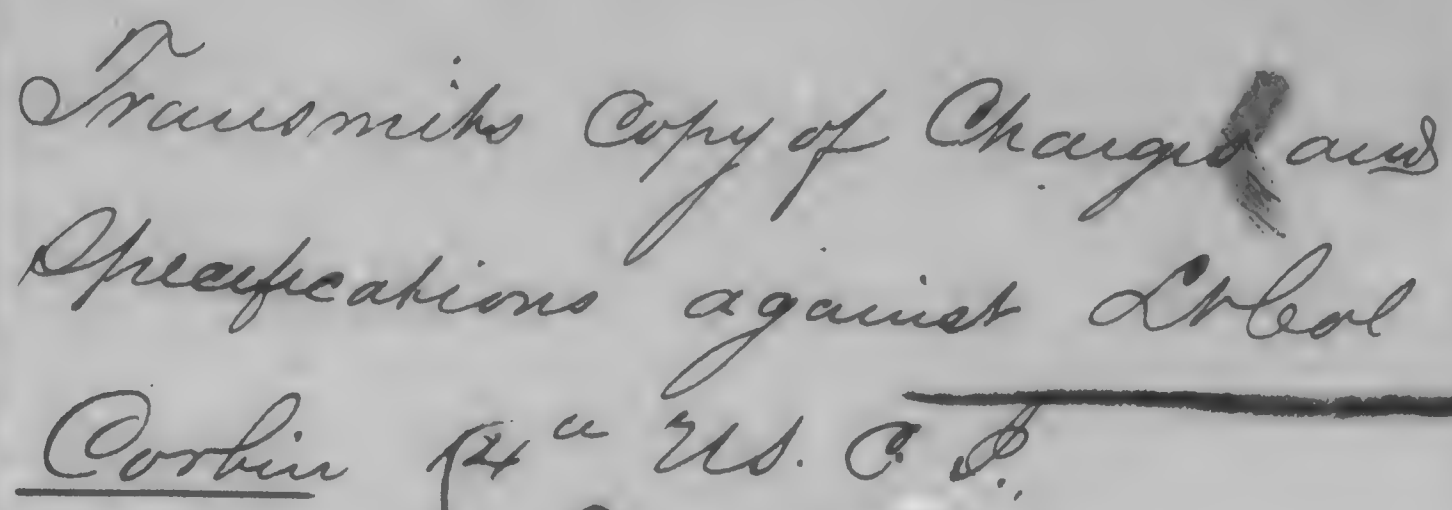 Transmits Copy of Charges and
Specifications against Lt Col
Corbin 14" U.S. C. T.